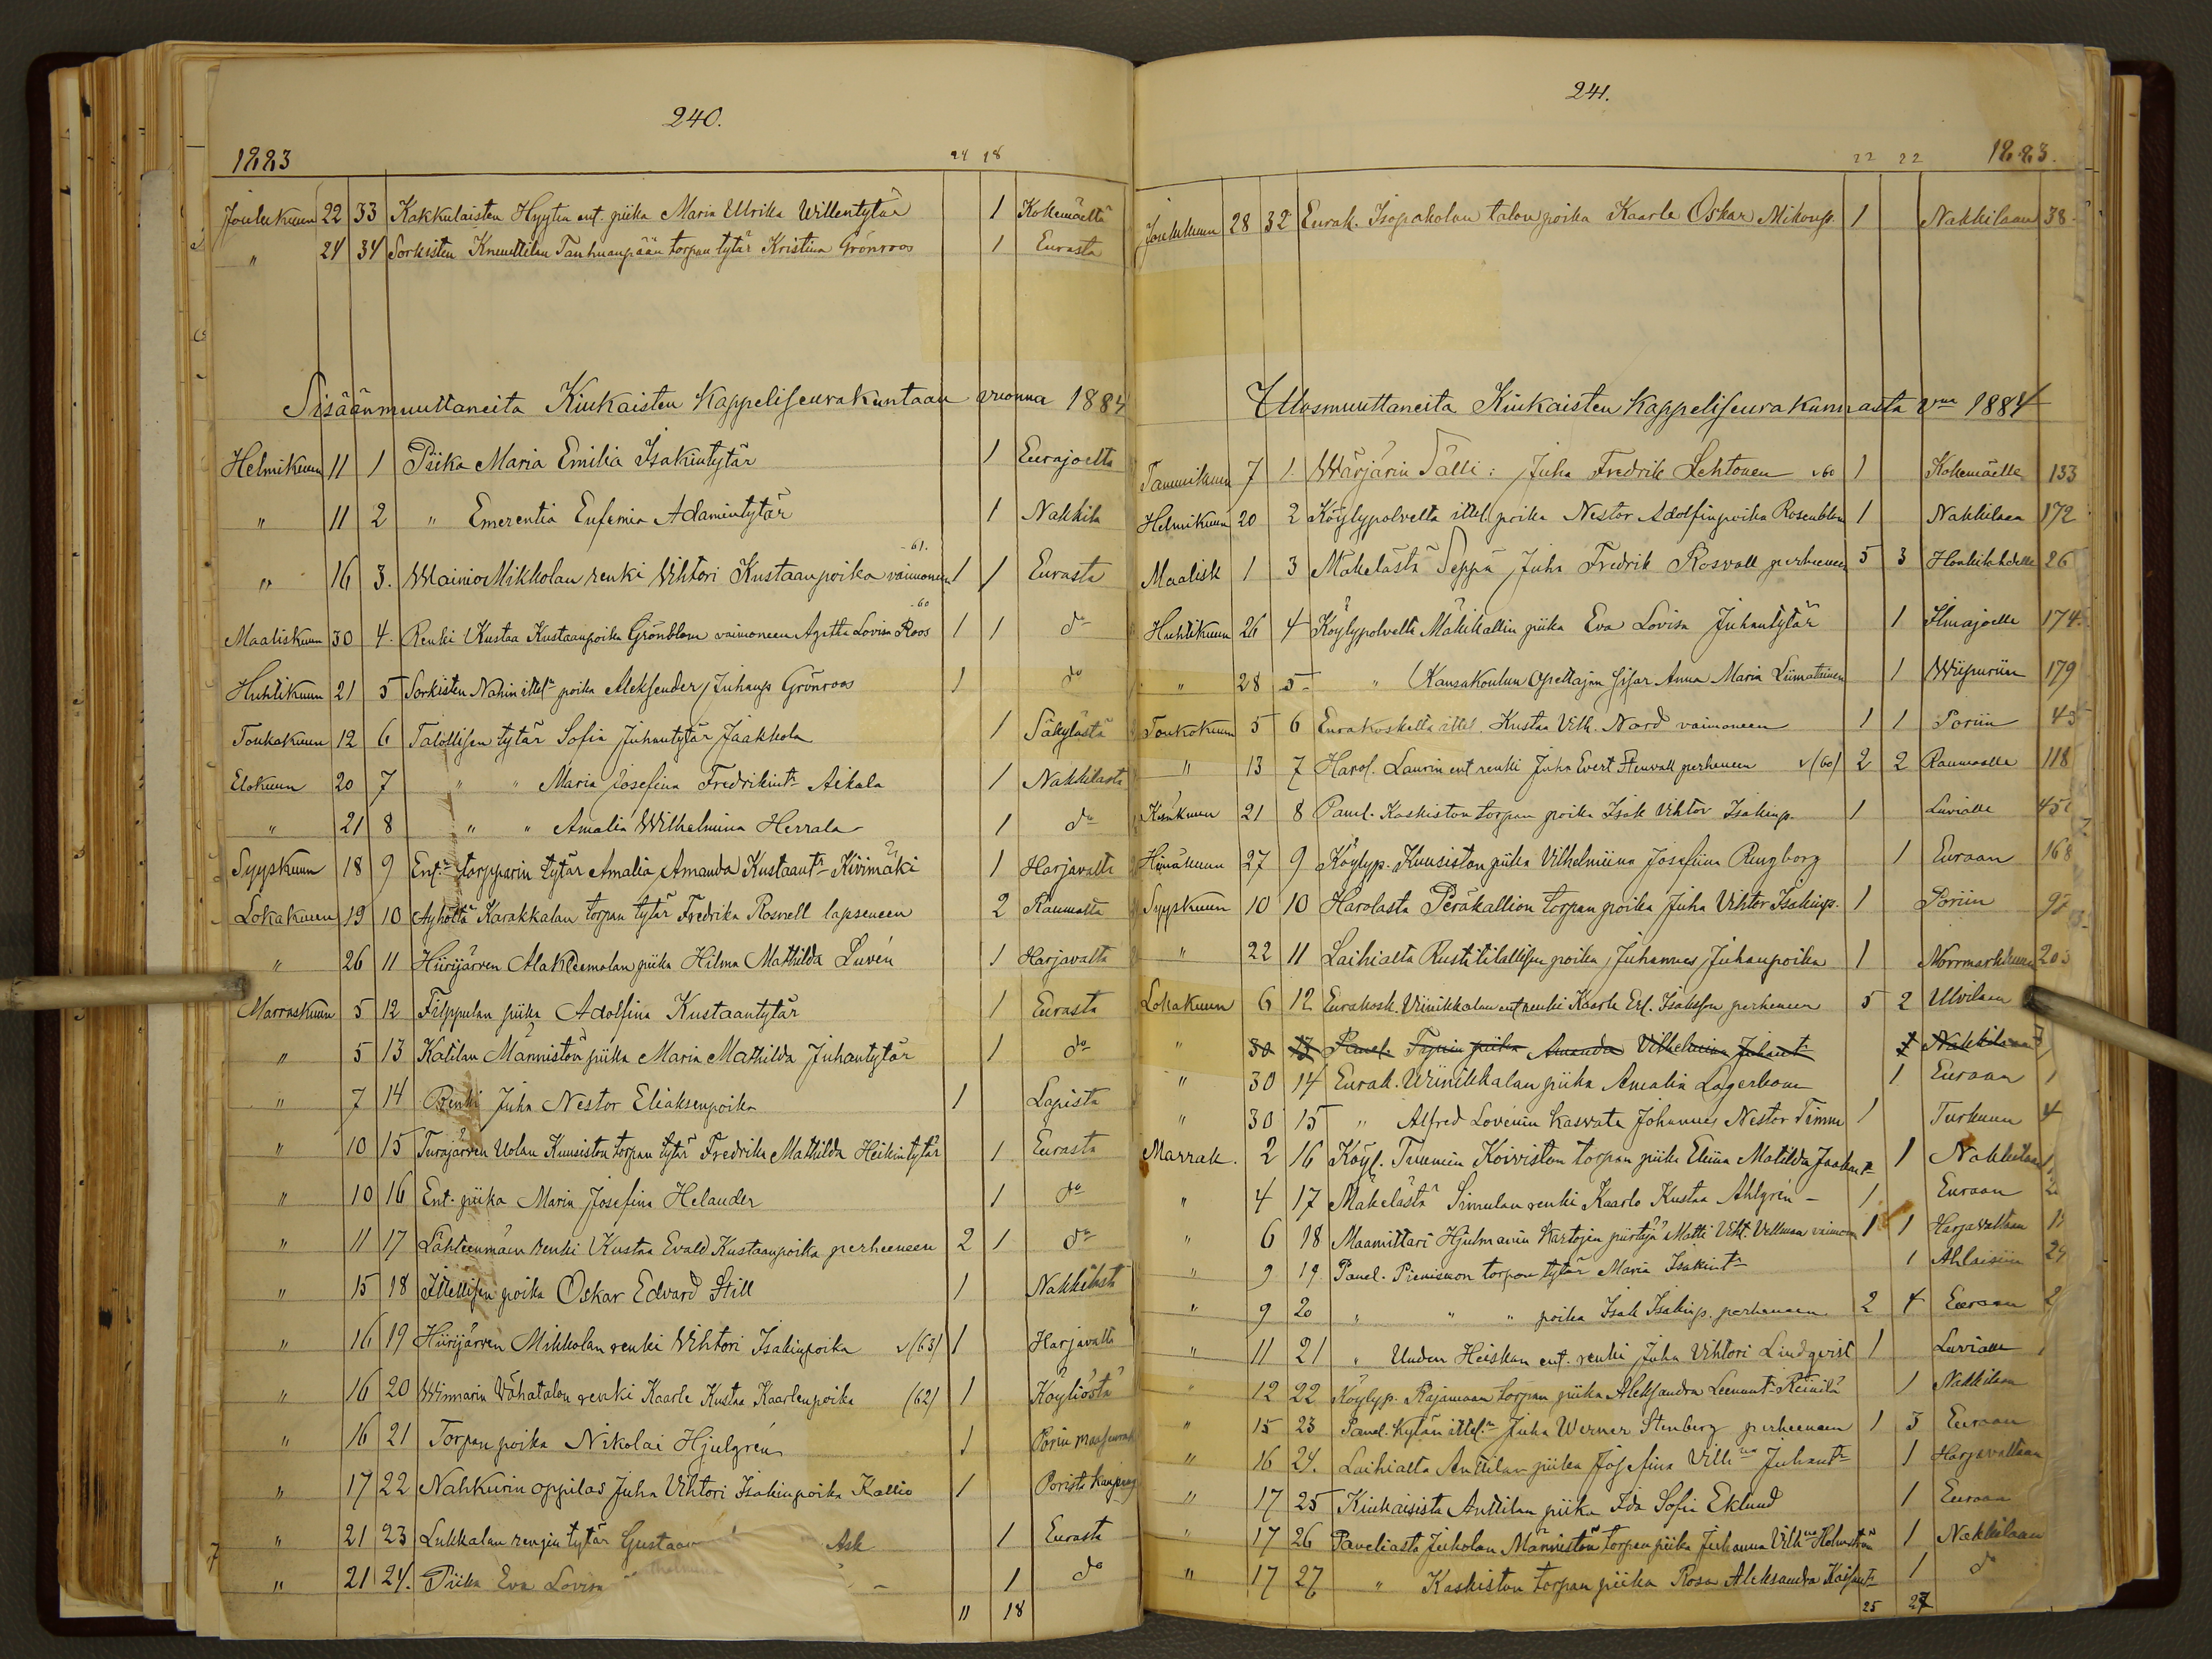 240.
1883 24 18
Joulukuun 22 33 Kakkulaisten Hyytin ent. piika Maria Ulrika Willentytär 1 Kokemäeltä
" 24 34 Sorkisten Knuuttilan Tanhuanpään torpan tytär Kristina Grönroos 1 Eurasta
Sisäänmuuttaneita Kiukaisten Kappeliseurakuntaan vuonna 1884
Helmikuun 11 1 Piika Maria Emilia Isakintytär 1 Eurajoelta
" 11 2 " Emerentia Eufemia Adamintytär 1 Nakkila
-61.
" 16 3. Wainio Mikkolan renki Vihtori Kustaanpoika vaimoneen 1 1 Eurasta
-60
Maaliskuun 30 4. Renki Kustaa Kustaanpoika Grönblom vaimoneen Agatha Lovisa Roos 1 1 do
Huhtikuun 21 5 Sorkisten Nahin ittel. poika Aleksander Juhanp. Grönroos 1 do
Toukokuun 12 6 Talollisen tytär Sofia Juhantytär Jaakkola 1 Säkylästä
Elokuun 20 7 " " Maria Josefina Fredrikint. Aikala 1 Nakkilasta
" 21 8 " " Amalia Wilhelmina Herrala 1 do
Syyskuun 18 9 Ent. torpparin tytär Amalia Amanda Kustaant. Kivimäki 1 Harjavalta
Lokakuun 19 10 Ayhöltä Karakkalan torpan tytär Fredrika Rosnell lapseneen 2 Raumalta
" 26 11 Hiirijärven piika Hilma Mathilda Luvén 1 Harjavalta
Marraskuun 5 12 Filppulan piika Adolfina Kustaantytär 1 Eurasta
" 5 13 Katilan Männistön piika Maria Mathilda Juhantytär 1 do
" 7 14 Renki Juha Nestor Eliaksenpoika 1 Lapista
" 10 15 Turajärven Uolan Kuusiston torpan tytär Fredrika Mathilda Heikintytär 1 Eurasta
" 10 16 Ent. piika Maria Josefina Helander 1 do
" 11 17 Lähteenmäen renki Kustaa Evald Kustaanpoika perheeneen 2 1 do
" 15 18 Ittellisen poika Oskar Edvard Still 1 Nakkilasta
" 16 19 Hiirijärven Mikkolan renki Vihtori Isakinpoika v (63) 1 Harjavalta
" 16 20 Winnarin Vähatalon renki Kaarle Kustaa Kaarlenpoika (62) 1 Köyliöstä
" 16 21 Torpan poika Nikolai Hjulgrén 1 Porin maaseurak
" 17 22 Nahkurin oppilas Juha Vihtori Isakinpoika Kallio 1 Porista
" 21 23 Lukkalan rengin tytär Ask 1 Eurasta
" 21 24. Piika Eva Lovisa 1 do
11 18
241.
22 22 1883.
Joulukuun 28 32 Eurak. Isopaholan talon poika Kaarle Oskar Mikonp. 1 Nakkilaan 38
Ulosmuuttaneita Kiukaisten Kappeliseurakunnasta vna 1884
Tammikuun 7 1. Wärjärin Sälli: Juha Fredrik Lehtonen v 60 1 Kokemäelle 133
Helmikuun 20 2 Köylypolvelta ittel. poika Nestor Adolfinpoika Rosenblom 1 Nakkilaan 172
Maalisk 1 3 Mäkelästä Seppä Juha Fredrik Rosvall perheeneen 5 3 Honkilahdelle 26
Huhtikuun 26 4 Köylypolvelta Mäkikallin piika Eva Lovisa Juhantytär 1 Ilmajoelle 174
" 28 5 " Kansakoulun Opettajan sisar Anna Maria Liimatainen 1 Wiipuriin 179
Toukokuun 5 6 Eurakoskelta ittel. Kustaa Vilh. Nord vaimoneen 1 1 Poriin 45
" 13 7 Harol. Laurin ent renki Juha Evert Stenvall perheneen v (60) 2 2 Raumalle 118
Kesäkuun 21 8 Panel. Kaskiston torpan poika Isak Vihtor Isakinp. 1 Luvialle
Heinäkuun 27 9 Köylyp. Kuusiston piika Vilhelmiina Josefiina Ringborg 1 Euraan 168
Syyskuun 10 10 Harolasta Peräkallion torpan poika Juha Vihtor Isakinp. 1 Poriin
" 22 11 Laihialta Rustitilallisen poika Juhannes Juhanpoika 1 Norrmarkkuun 20
Lokakuun 6 12 Eurakosk. Viinikkalan ent renki Kaarle Erl. Isaksson perheneen 5 2 Ulvilaan
" 30 13 Panel. piika Amanda Vilhelmiina Juhant. 1 Nakkilaan
" 30 14 Eurak. Wiinikkalan piika Amalia Lagerbom 1 Euraan 1
" 30 15 " Alfred Lovénin kasvate Johannes Nestor Timm 1 Turkuun 4
Marrak. 2 16 Köyl. Tuomin Koiviston torpan piika Eliina Matilda Jaakont. 1 Nakkilaan
" 4 17 Mäkelästä Simulan renki Kaarlo Kustaa Ahlgrén - 1 Euraan 2
" 6 18 Maamittari Hjulmanin Kartojen piirtäjä Matti Viht. Vellman vaimon 1 1 Harjavaltaan
" 9 19 Panel. torpan tytär Maria Isakint. 1 Ahlaisiin 24
" 9 20 " " " poika Isak Isakinp. perheneen 2 4 Euraan 2
" 11 21 " Uuden Heiskan ent. renki Juha Vihtori Lindqvist 1 Luvialle
" 12 22 Köylyp. Rajamaan torpan piika Aleksandra Leenant. Reinilä 1 Nakkilaan
" 15 23 Panel. Kylän ittel. Juha Werner Stenberg perheeneen 1 3 Euraan
" 16 24. Laihialta Anttilan piika Josefina Vilh:na Juhant. 1 Harjavaltaan
" 17 25 Kiukaisista Anttilan piika Ida Sofia Eklund 1 Euraan
" 17 26 Paneliasta Juholan Männistön torpan piika Juhanna Vilh:na Holmström 1 Nakkilaan
" 17 27 " Kaskiston torpan piika Rosa Aleksandra 1 d
25 27